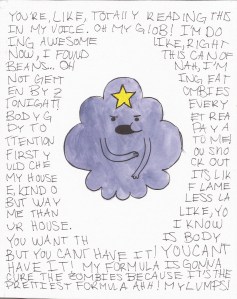 YOU'RE, LIKE, TOTALLY READING THIS
IN MY VOICE. OH MY GLOB! I'M DO
ING AWESOME LIKE, RIGHT
NOW, I FOUND THIS CAN OF
BEANS... OH NAH, I'M
NOT GETT ING EAT
EN BY Z OMBIES
TONIGHT! EVERY
BODY G ET REA
DY TO PAY A
TTENTION TO ME!
FIRST Y OU SHO
ULD CHE CK OUT
MY HOUS ITS LIK
E, KIND O F LAME
BUT WAY LESS LA
ME THAN LIKE, YO
UR HOUSE. I KNOW
YOU WANT TH IS BODY
BUT YOU CANT HAVE IT! YOU CANT
HAVE IT! MY FORMULA IS GONNA
CURE THE ZOMBIES BECAUSE IT'S THE
PRETTIEST FORMULA AHH! MY LUMPS!